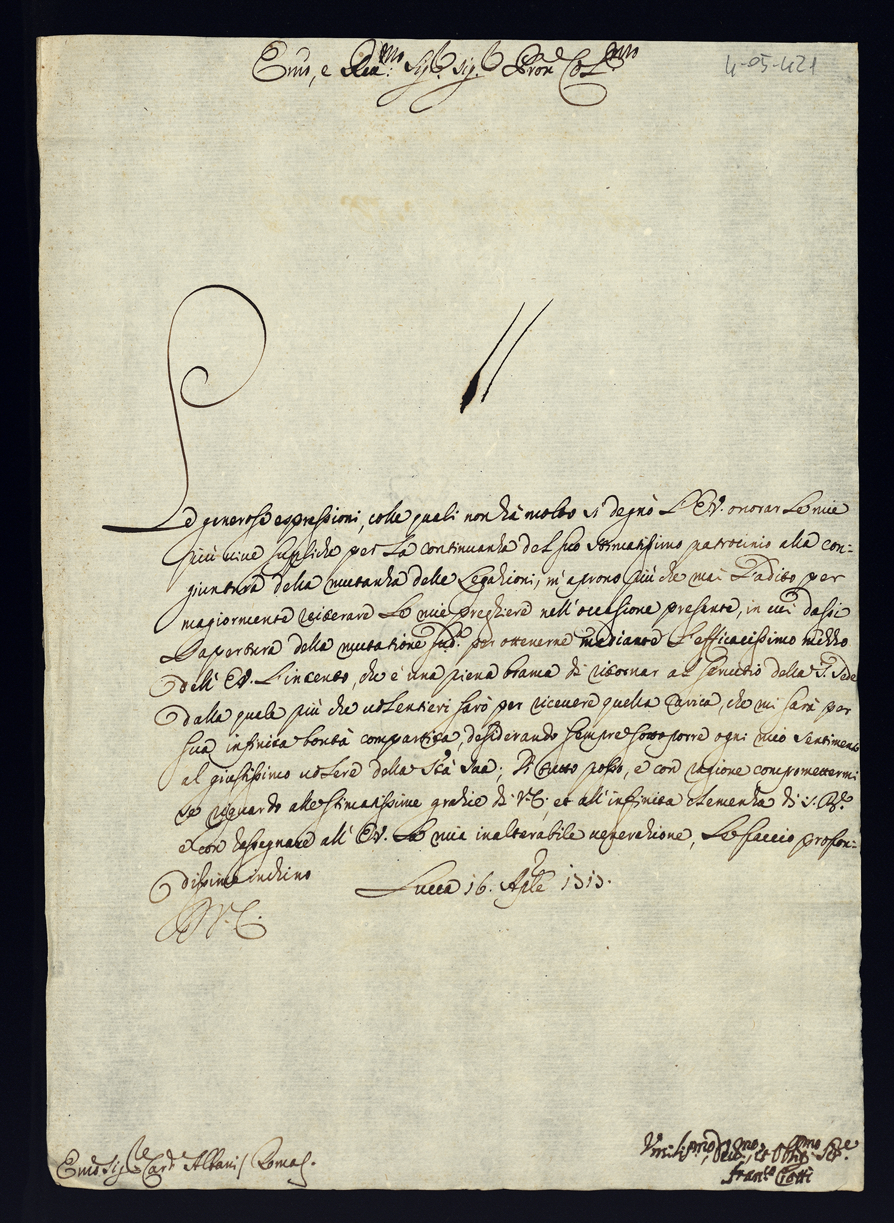 Emo, e Reumo Sigre Sigre Pron Colmo
4-05-421
Le generose espressioni, colle quali non hà molto si degnò L'EV. onorar Le mie
più vive suppliche per La continuanza del suo stimatissimo patrocinio alla con-
giuntura della mutanza delle Legazioni, m'aprono più che mai L'adito per
magiormente reiterare Le mie preghiere nell'occasione presente, in cui dassi
L'apertura della mutatione sudª. per ottenerne mediante L'efficacissimo mezzo
dell'EV. L'intento, che è una piena brama di ritornar al servitio della S. Sede
dalla quale più che uolentieri sarò per riceuere quella carica, che mi sarà per
sua infinita bontà compartita, desiderando sempre sottoporre ogni mio sentimento
al giustissimo uolere della Stà Sua; Di tutto posso, e con ragione compromettermi
se riguardo alle stimatissime grazie di V.E; et all'infinita clemenza di S. Bne.
e con rassegnare all'EV. La mia inalterabile uenerazione, Le faccio profon-
dissimo inchino
Lucca 16. Aple 1313.
D V. E.
Emo Sigre Card Albani Roma
Vmilismo, Deumo, et Obbmo Sre.
Franco Ciotti